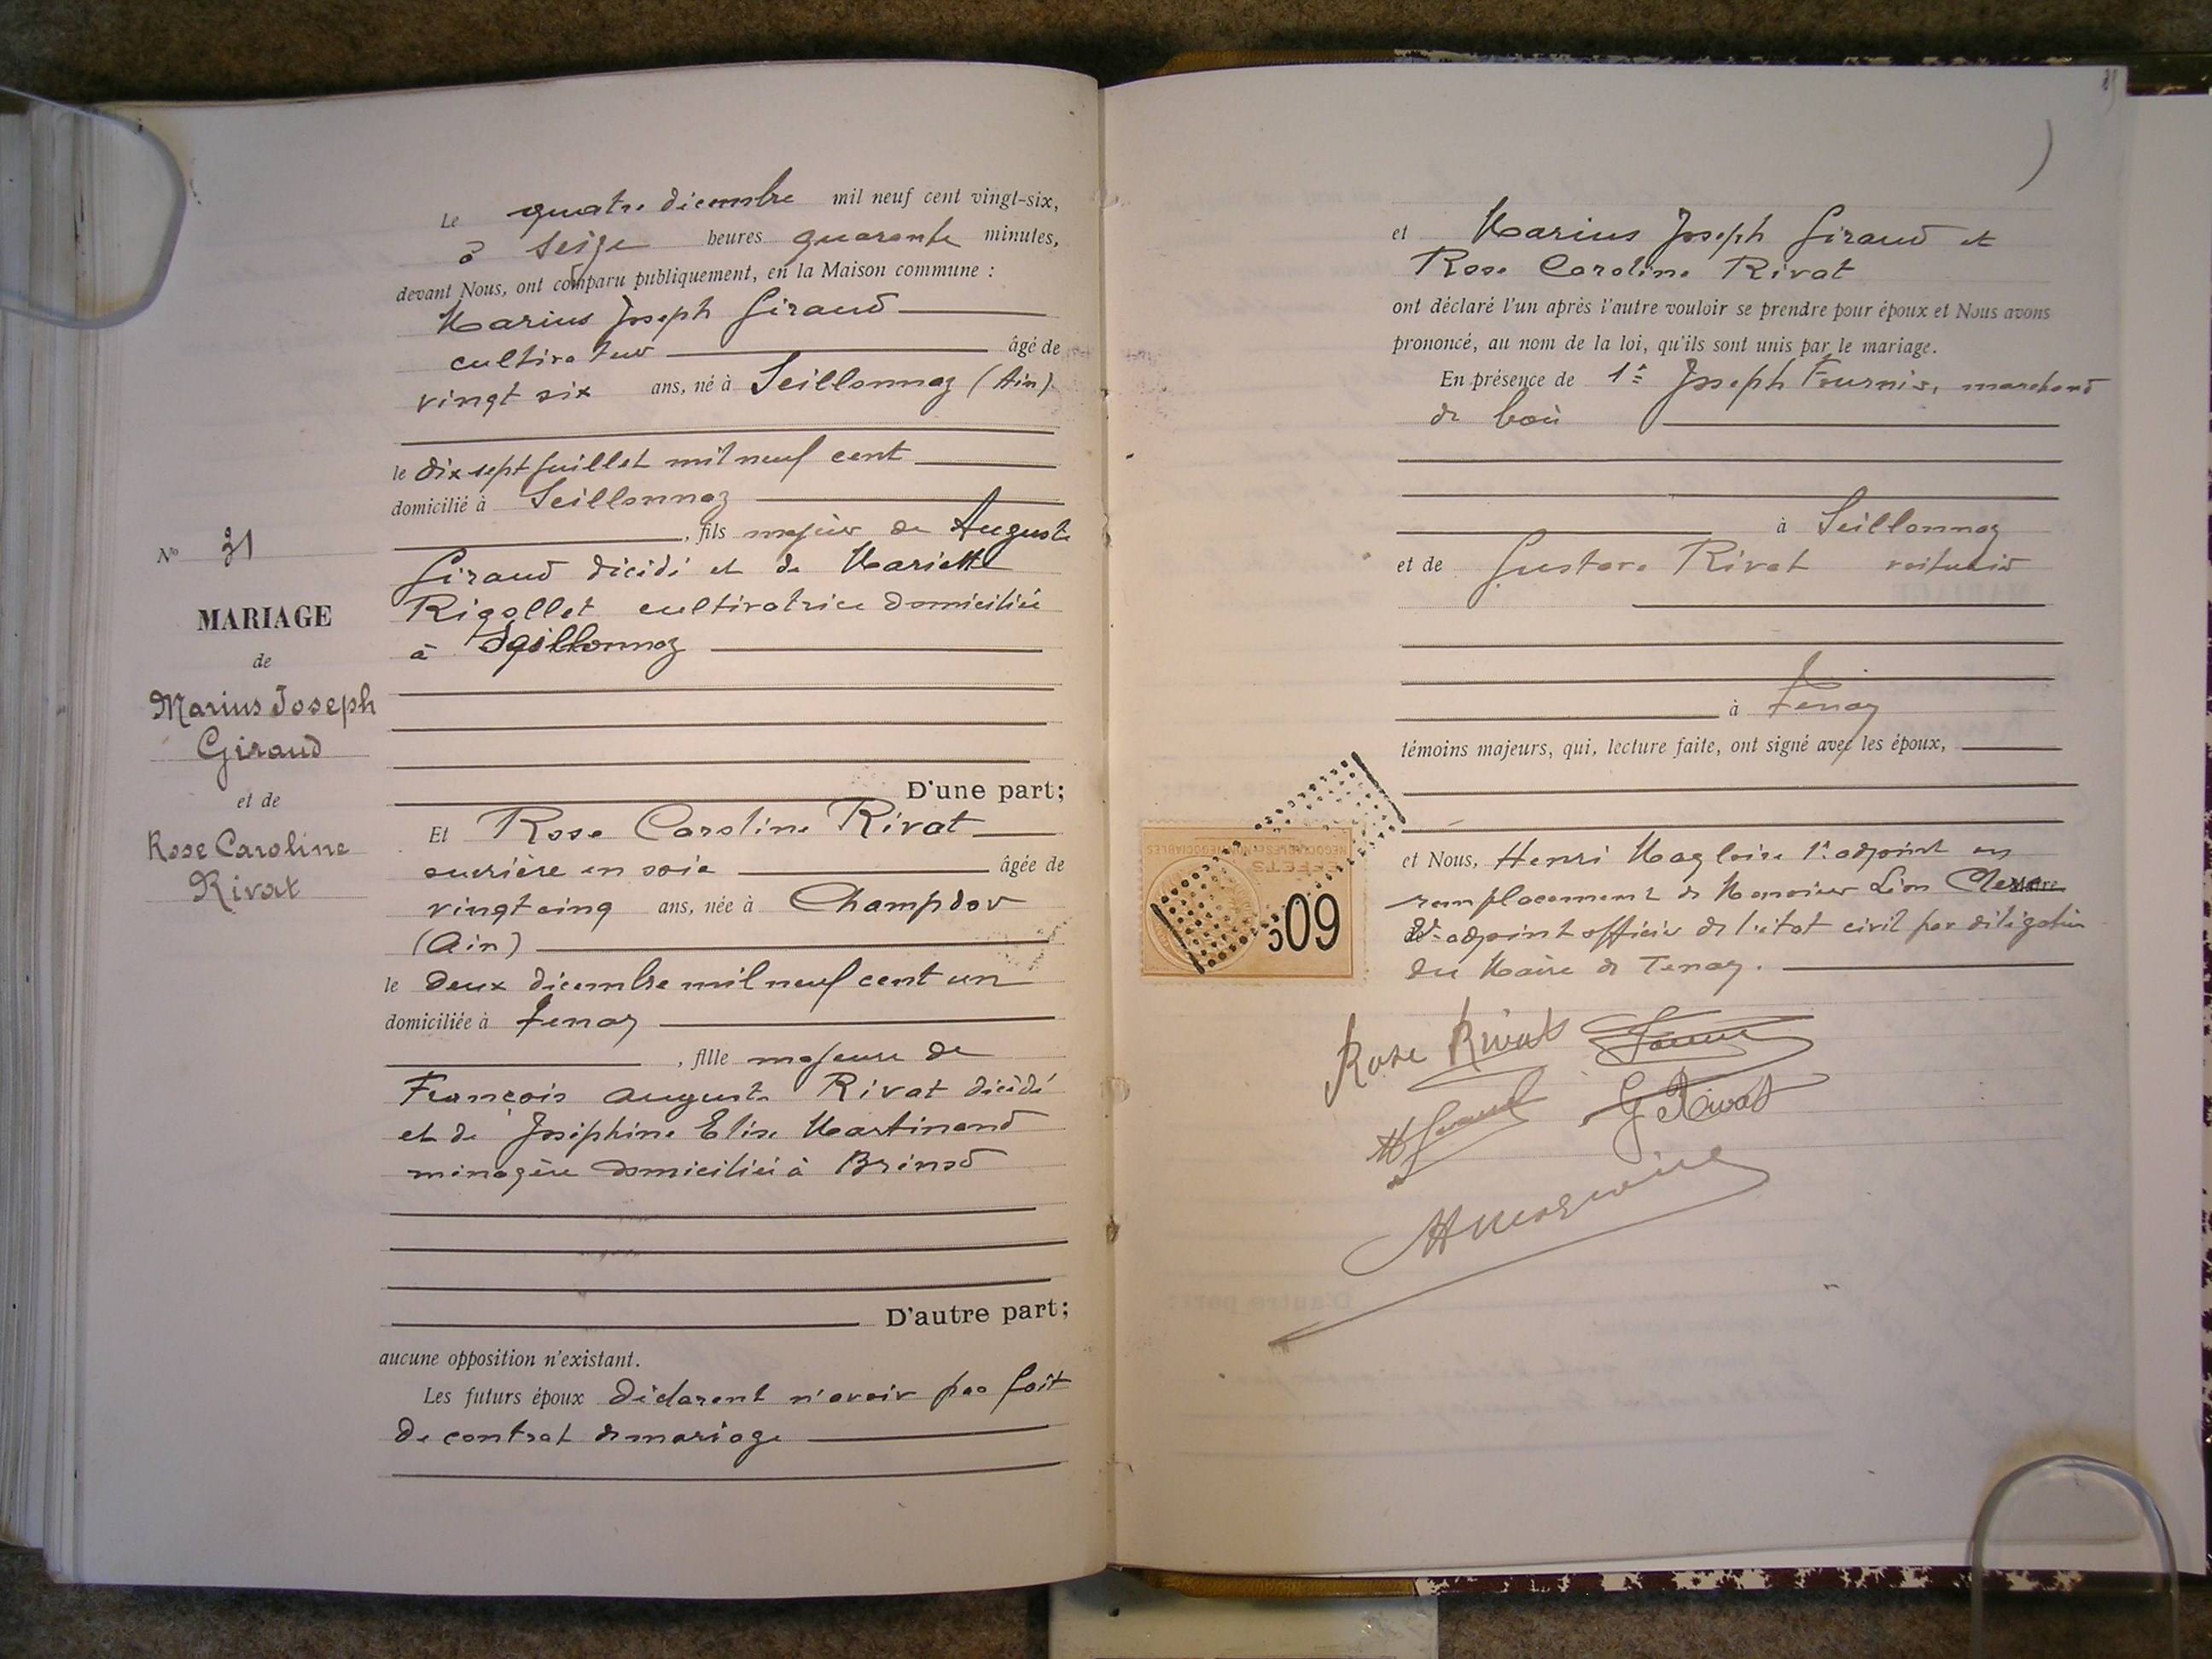 Le quatre décembre mil neuf cent vingt-six,
à seize heures quarante minutes,
devant Nous, ont comparu publiquement, en la Maison commune :
Marius Joseph Giraud
cultivateur âgé de
vingt six ans, né à Seillonnaz (Ain)
le dix sept juillet mil neuf cent
domicilié à Seillonnaz
, fils majeur de Auguste
Giraud décédé et de Mariette
Rigollet cultivatrice domiciliée
à Seillonnaz
D'une part;
N° 31
MARIAGE
de
Marius Joseph
Giraud
et de
Rose Caroline
Rivat
Et Rose Caroline Rivat
ouvrière en soie âgée de
vingt cinq ans, née à Champdor
(Ain)
le deux décembre mil neuf cent un
domiciliée à Tenay
, fille majeure de
François Auguste Rivat décédé
et de Joséphine Elise Martinand
ménagère domiciliée à Brénod
D'autre part;
aucune opposition n'existant.
Les futurs époux déclarent n'avoir pas fait
de contrat de mariage
et Marius Joseph Giraud et
Rose Caroline Rivat
ont déclaré l'un après l'autre vouloir se prendre pour époux et Nous avons
prononcé, au nom de la loi, qu'ils sont unis par le mariage.
En présence de 1° Joseph Fournier, marchand
de bois
à Seillonnaz
et de Gustave Rivat voiturier
à Tenay
témoins majeurs, qui, lecture faite, ont signé avec les époux,
et Nous, Henri Magloire 1er adjoint en
remplacement de Monsieur Léon Maire
adjoint officier de l'état civil par délégation
du Maire de Tenay.
EFFETS
60
Rose Rivat
G Rivat